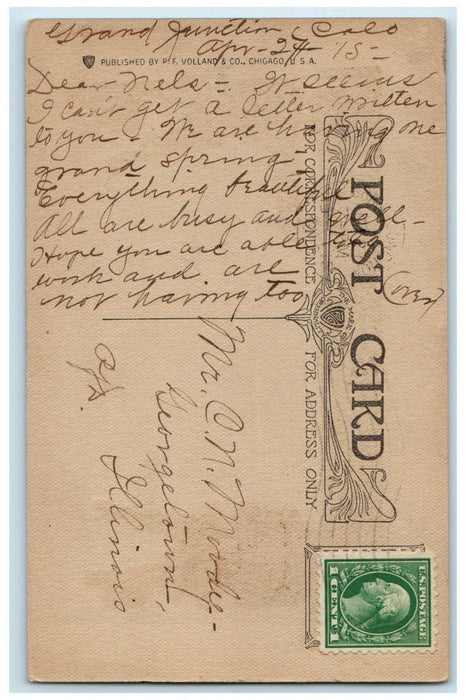 Grand Junction, Colo
Apr-24-15-
PUBLISHED BY P. F. VOLLAND & CO., CHICAGO, U. S. A.
Dear Nels- It seems
I can't get a letter written
to you- We are having one
grand spring-
Everything beautiful
All are busy and well-
Hope you are able to
work and are
not having too (over)
FOR CORRESPONDENCE
POST CARD
FOR ADDRESS ONLY
Mr. C. N. Moody-
Georgetown,
Illinois
U.S. POSTAGE
1 CENT 1